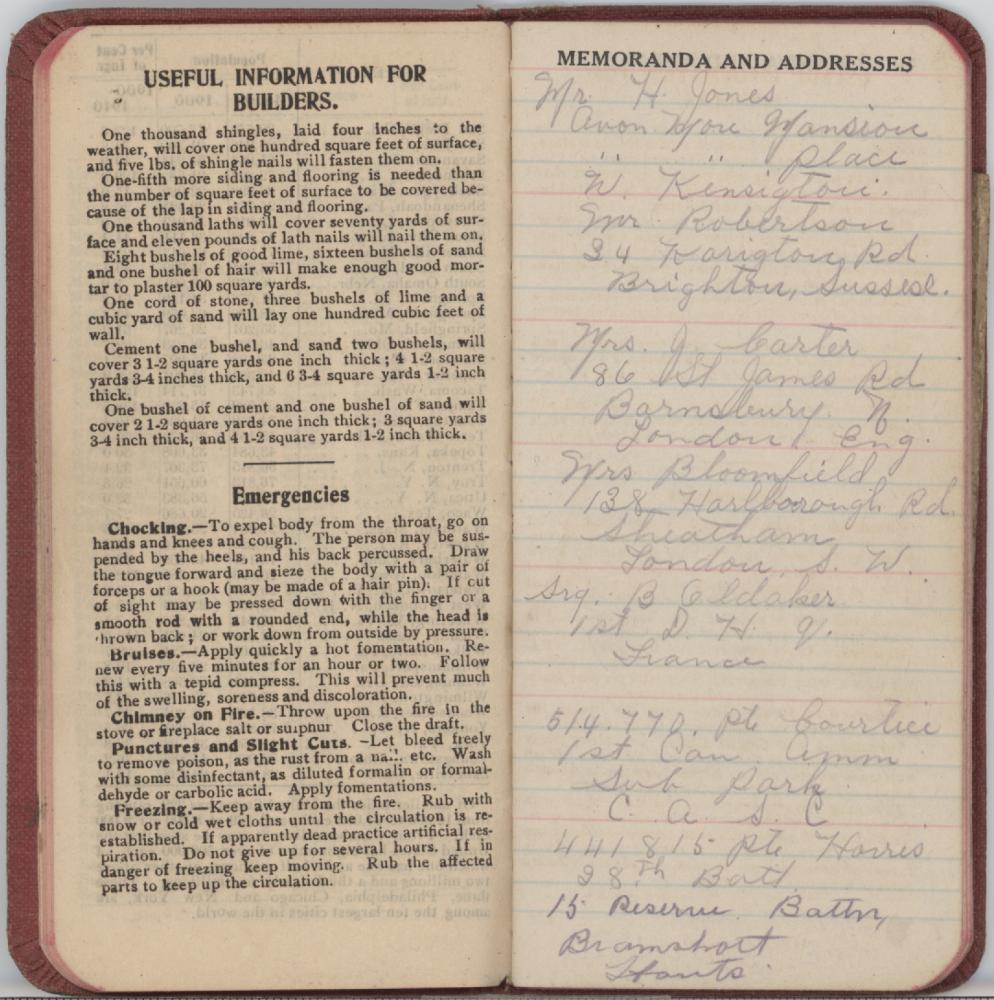 USEFUL INFORMATION FOR
BUILDERS.
One thousand shingles, laid four inches to the
weather, will cover one hundred square feet of surface,
and five lbs. of shingle nails will fasten them on.
One-fifth more siding and flooring is needed than
the number of square feet of surface to be covered be-
cause of the lap in siding and flooring.
One thousand laths will cover seventy yards of sur-
face and eleven pounds of lath nails will nail them on.
Eight bushels of good lime, sixteen bushels of sand
and one bushel of hair will make enough good mor-
tar to plaster 100 square yards.
One cord of stone, three bushels of lime and a
cubic yard of sand will lay one hundred cubic feet of
wall.
Cement one bushel, and sand two bushels, will
cover 3 1-2 square yards one inch thick; 4 1-2 square
yards 3-4 inches thick, and 6 3-4 square yards 1-2 inch
thick.
One bushel of cement and one bushel of sand will
cover 2 1-2 square yards one inch thick; 3 square yards
3-4 inch thick, and 4 1-2 square yards 1-2 inch thick.
Emergencies
Chocking.—To expel body from the throat, go on
hands and knees and cough. The person may be sus-
pended by the heels, and his back percussed. Draw
the tongue forward and sieze the body with a pair of
forceps or a hook (may be made of a hair pin). If cut
of sight may be pressed down with the finger or a
smooth rod with a rounded end, while the head is
thrown back; or work down from outside by pressure.
Bruises.—Apply quickly a hot fomentation. Re-
new every five minutes for an hour or two. Follow
this with a tepid compress. This will prevent much
of the swelling, soreness and discoloration.
Chimney on Fire.—Throw upon the fire in the
stove or fireplace salt or sulphur Close the draft.
Punctures and Slight Cuts. —Let bleed freely
to remove poison, as the rust from a nail. etc. Wash
with some disinfectant, as diluted formalin or formal-
dehyde or carbolic acid. Apply fomentations.
Freezing.—Keep away from the fire. Rub with
snow or cold wet cloths until the circulation is re-
established. If apparently dead practice artificial res-
piration. Do not give up for several hours. If in
danger of freezing keep moving. Rub the affected
parts to keep up the circulation.
MEMORANDA AND ADDRESSES
Mr. H. Jones
Avon Mansion
" " place
W. Kensigton.
Mr Robertson
34 Rd.
Brighton, Sussex.
Mrs. J. Carter
86 St James Rd
Barnsbury. N.
London Eng.
Mrs Bloomfield
138 Marlborough Rd.
London, S. W.
Srg. B Oldaker
1st D. H. Q.
France
514.770. Pte Courtice
1st Can. Amm
Sub Park
C. A. S. C
441815 Pte Harris
28th Batt.
15 Reserve Battn,
Bramshott
Hants.